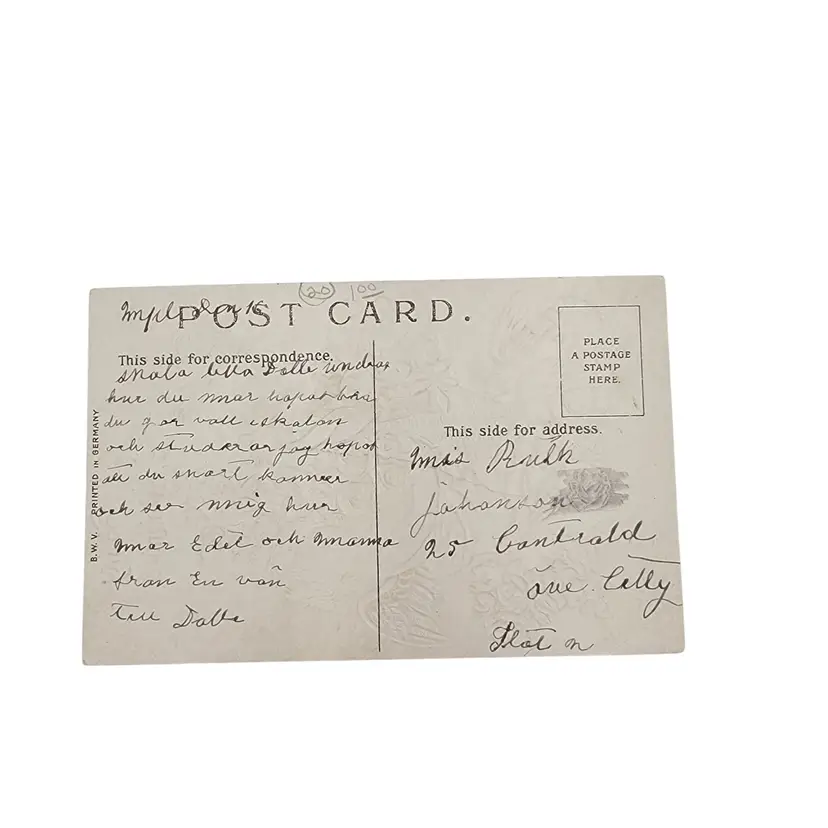 20 1 00
POST CARD.
This side for correspondence.
lilla Dolle undrar
hur du mar hopas bra
du gar vall i skolan
och studerar jag hopas
att du snart kommer
och ser mig hur
mar Edet och Mamma
fran En van
till Dolle
B.W.V. PRINTED IN GERMANY
PLACE
A POSTAGE
STAMP
HERE.
This side for address.
Miss Ruth
Johanson
25
ave. City